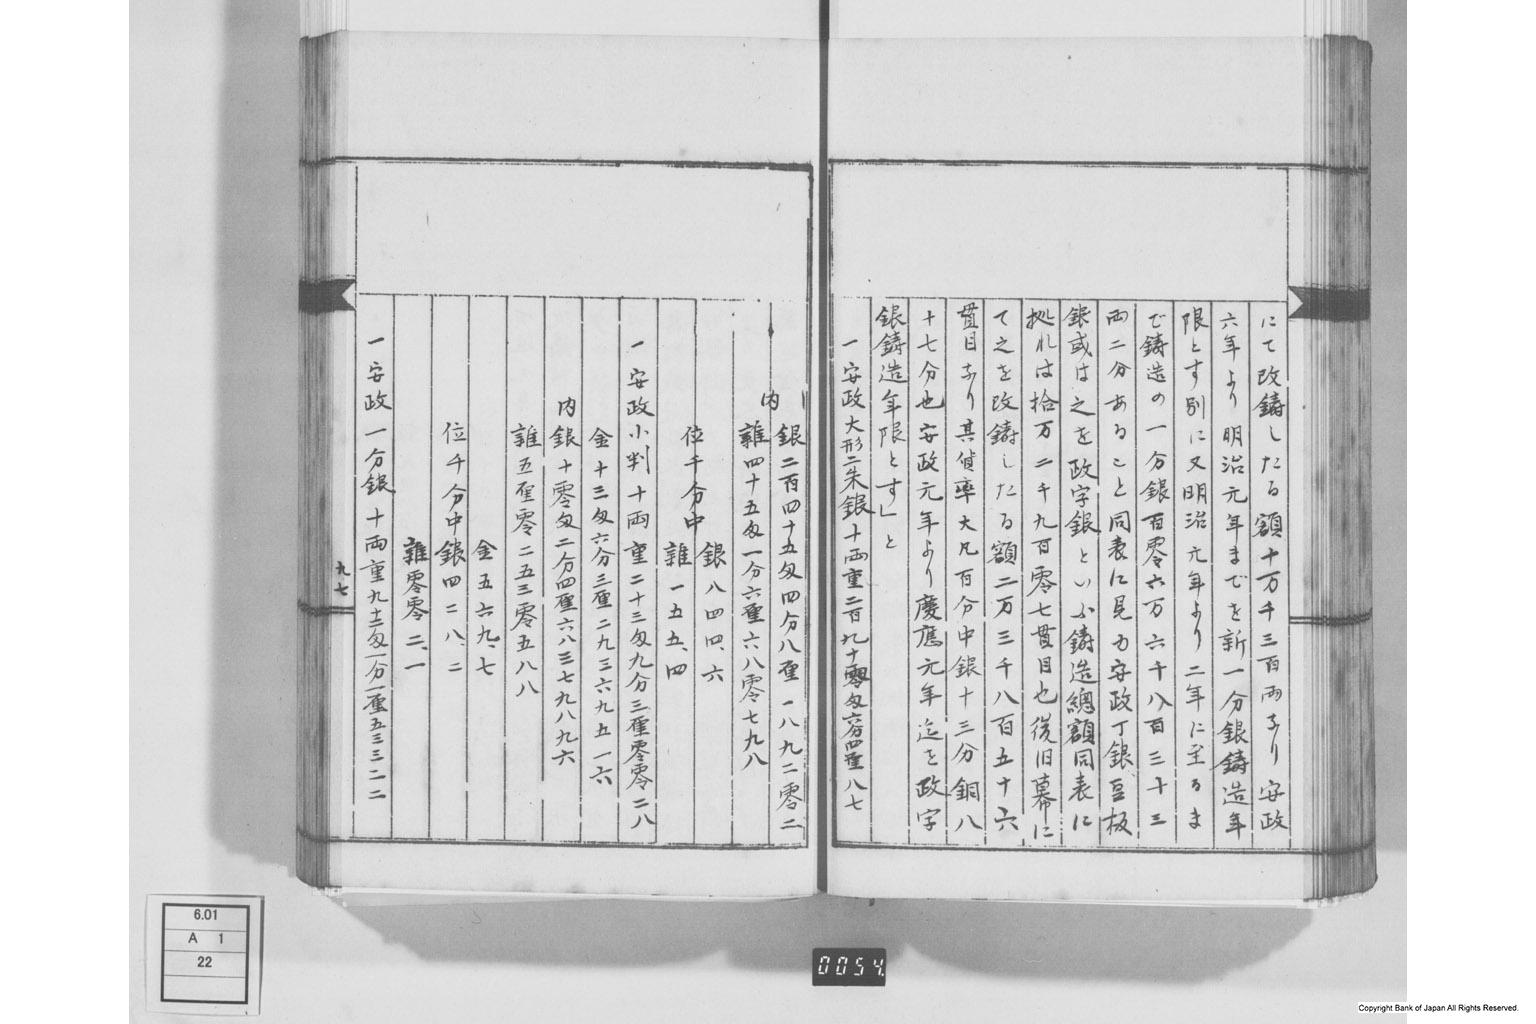 にて改鋳したる額十万千三百両なり安政
六年より明治元年までを新一分銀鋳造年
限とす別に又明治元年より二年に至るま
で鋳造の一分銀百零六万六千八百三十三
両二分あること同表に見ゆ安政丁銀豆板
銀或は之を政字銀といふ鋳造總額同表に
拠れは拾万二千九百零七貫目也後旧幕に
て之を改鋳したる額二万三千八百五十六
貫目なり其價率大凡百分中銀十三分銅八
十七分也安政元年より慶應元年迄を政字
銀鋳造年限とす」と
一安政大形二朱銀十両重二百九十零匁六分四厘八七
内
銀二百四十五匁四分八厘一八九二零二
雜四十五匁一分六厘六八零七九八
位千分中
銀八四四、六
雜一五五、四
一安政小判十両重二十三匁九分三厘零零二八
金十三匁六分三厘二九三六九五一六
内
銀十零匁二分四厘六八三七九八九六
雜五厘零二五三零五八八
金五六九、七
位千分中銀四二八、二
雜零零二、一
一安政一分銀十両重九十二匁一分一厘五三三二二
九七
6.01
A 1
22
0054.
Copyright Bank of Japan All Rights Reserved.